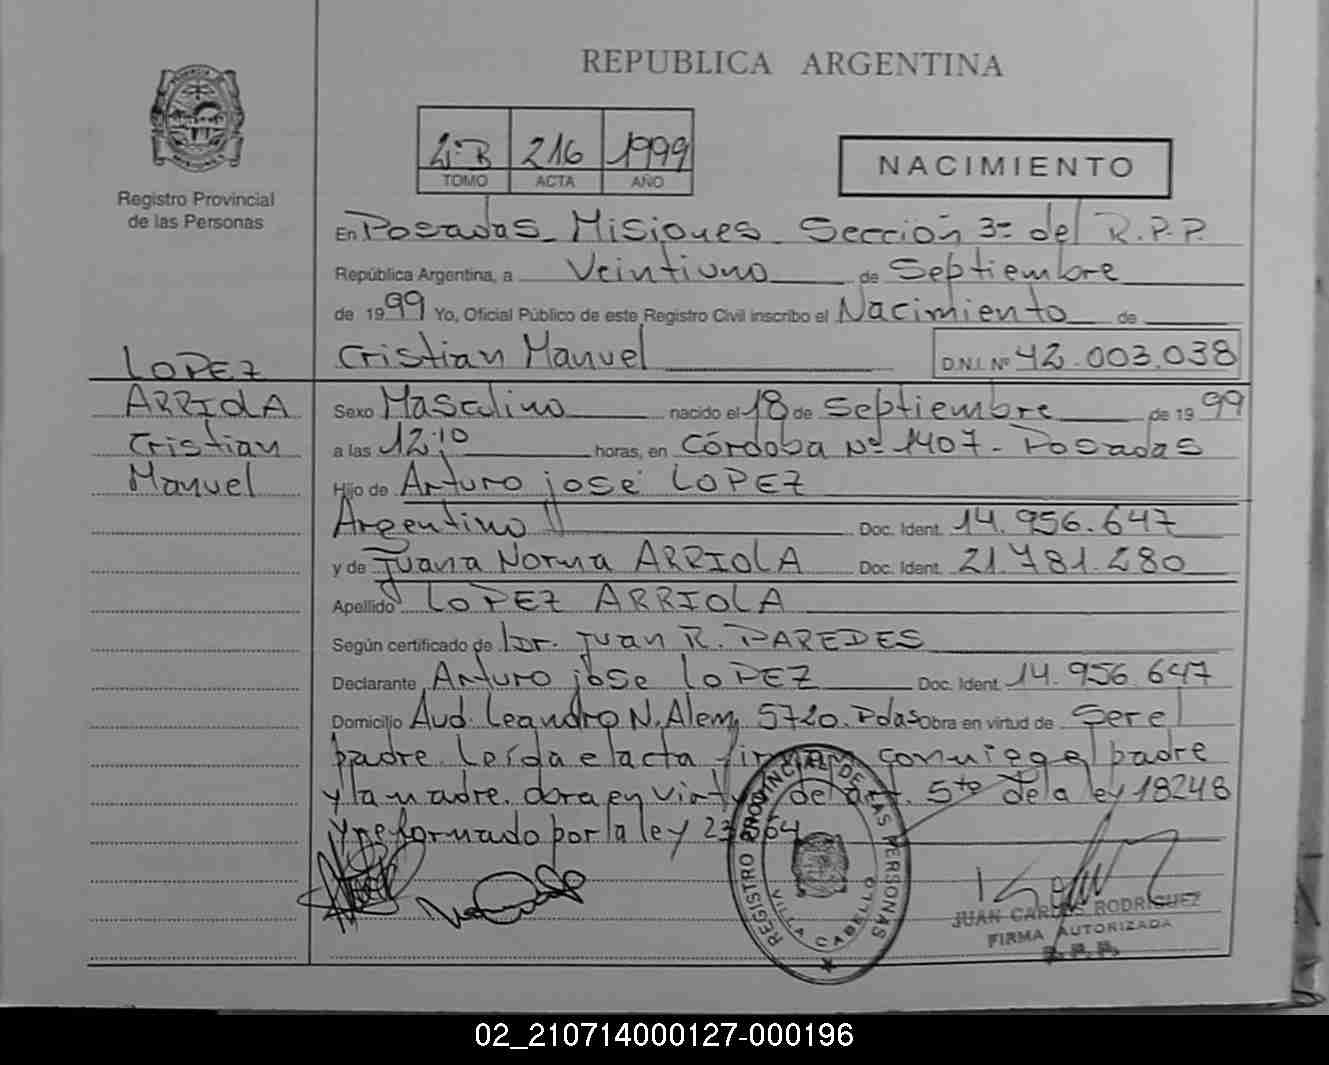 REPUBLICA ARGENTINA
Registro Provincial
de las Personas
216 1999
TOMO ACTA AÑO
NACIMIENTO
En Posadas - Misiones - Sección 3ª del R.P.P.
República Argentina, a Veintiuno de Septiembre
de 1999 Yo, Oficial Público de este Registro Civil inscribo el Nacimiento de
Cristian Manuel D.N.I. Nº 42.003.038
LOPEZ
ARRIOLA
Cristian
Manuel
Sexo Masculino nacido el 18 de Septiembre de 1999
a las 12:10 horas, en Córdoba Nº 1407 - Posadas
Hijo de Arturo José LOPEZ
Argentino Doc. Ident. 14.956.647
y de Juana Norma ARRIOLA Doc. Ident. 21.781.280
Apellido LOPEZ ARRIOLA
Según certificado de Dr. Juan R. PAREDES
Declarante Arturo José LOPEZ Doc. Ident. 14.956.647
Domicilio Avd. Leandro N. Alem, 5720. Pdas Obra en virtud de Ser el
padre. Leída el acta firman conmigo el padre
y la madre. obra en virtud del art. 5to de la ley 18248
y reformado por la ley
REGISTRO PROVINCIAL DE LAS PERSONAS
VILLA CABELLO
JUAN CARLOS RODRIGUEZ
FIRMA AUTORIZADA
R.P.P.
02_210714000127-000196